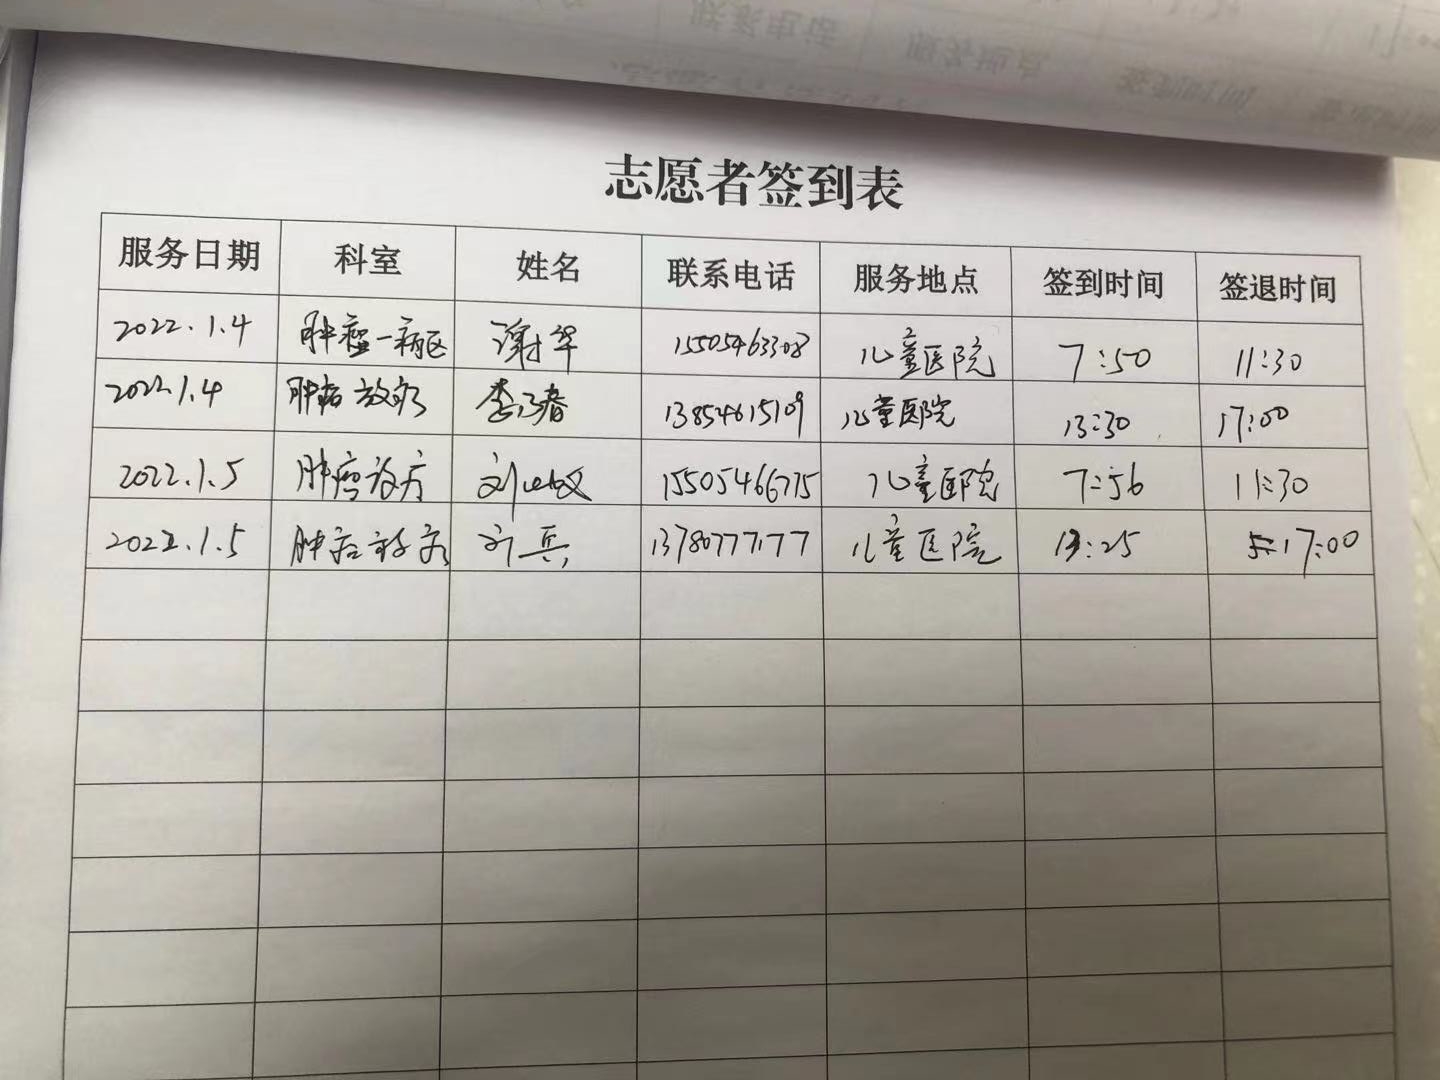 志愿者签到表
服务日期 科室 姓名 联系电话 服务地点 签到时间 签退时间
2022.1.4 肿瘤一病区 谢华 15505463308 儿童医院 7:50 11:30
2022.1.4 肿瘤放疗 李 春 13854615109 儿童医院 13:30 17:00
2022.1.5 肿瘤放疗 刘 15505466775 儿童医院 7:56 11:30
2022.1.5 肿瘤 疗 兵 13780777177 儿童医院 13:25 17:00
联系电话 服务地点 签到时间